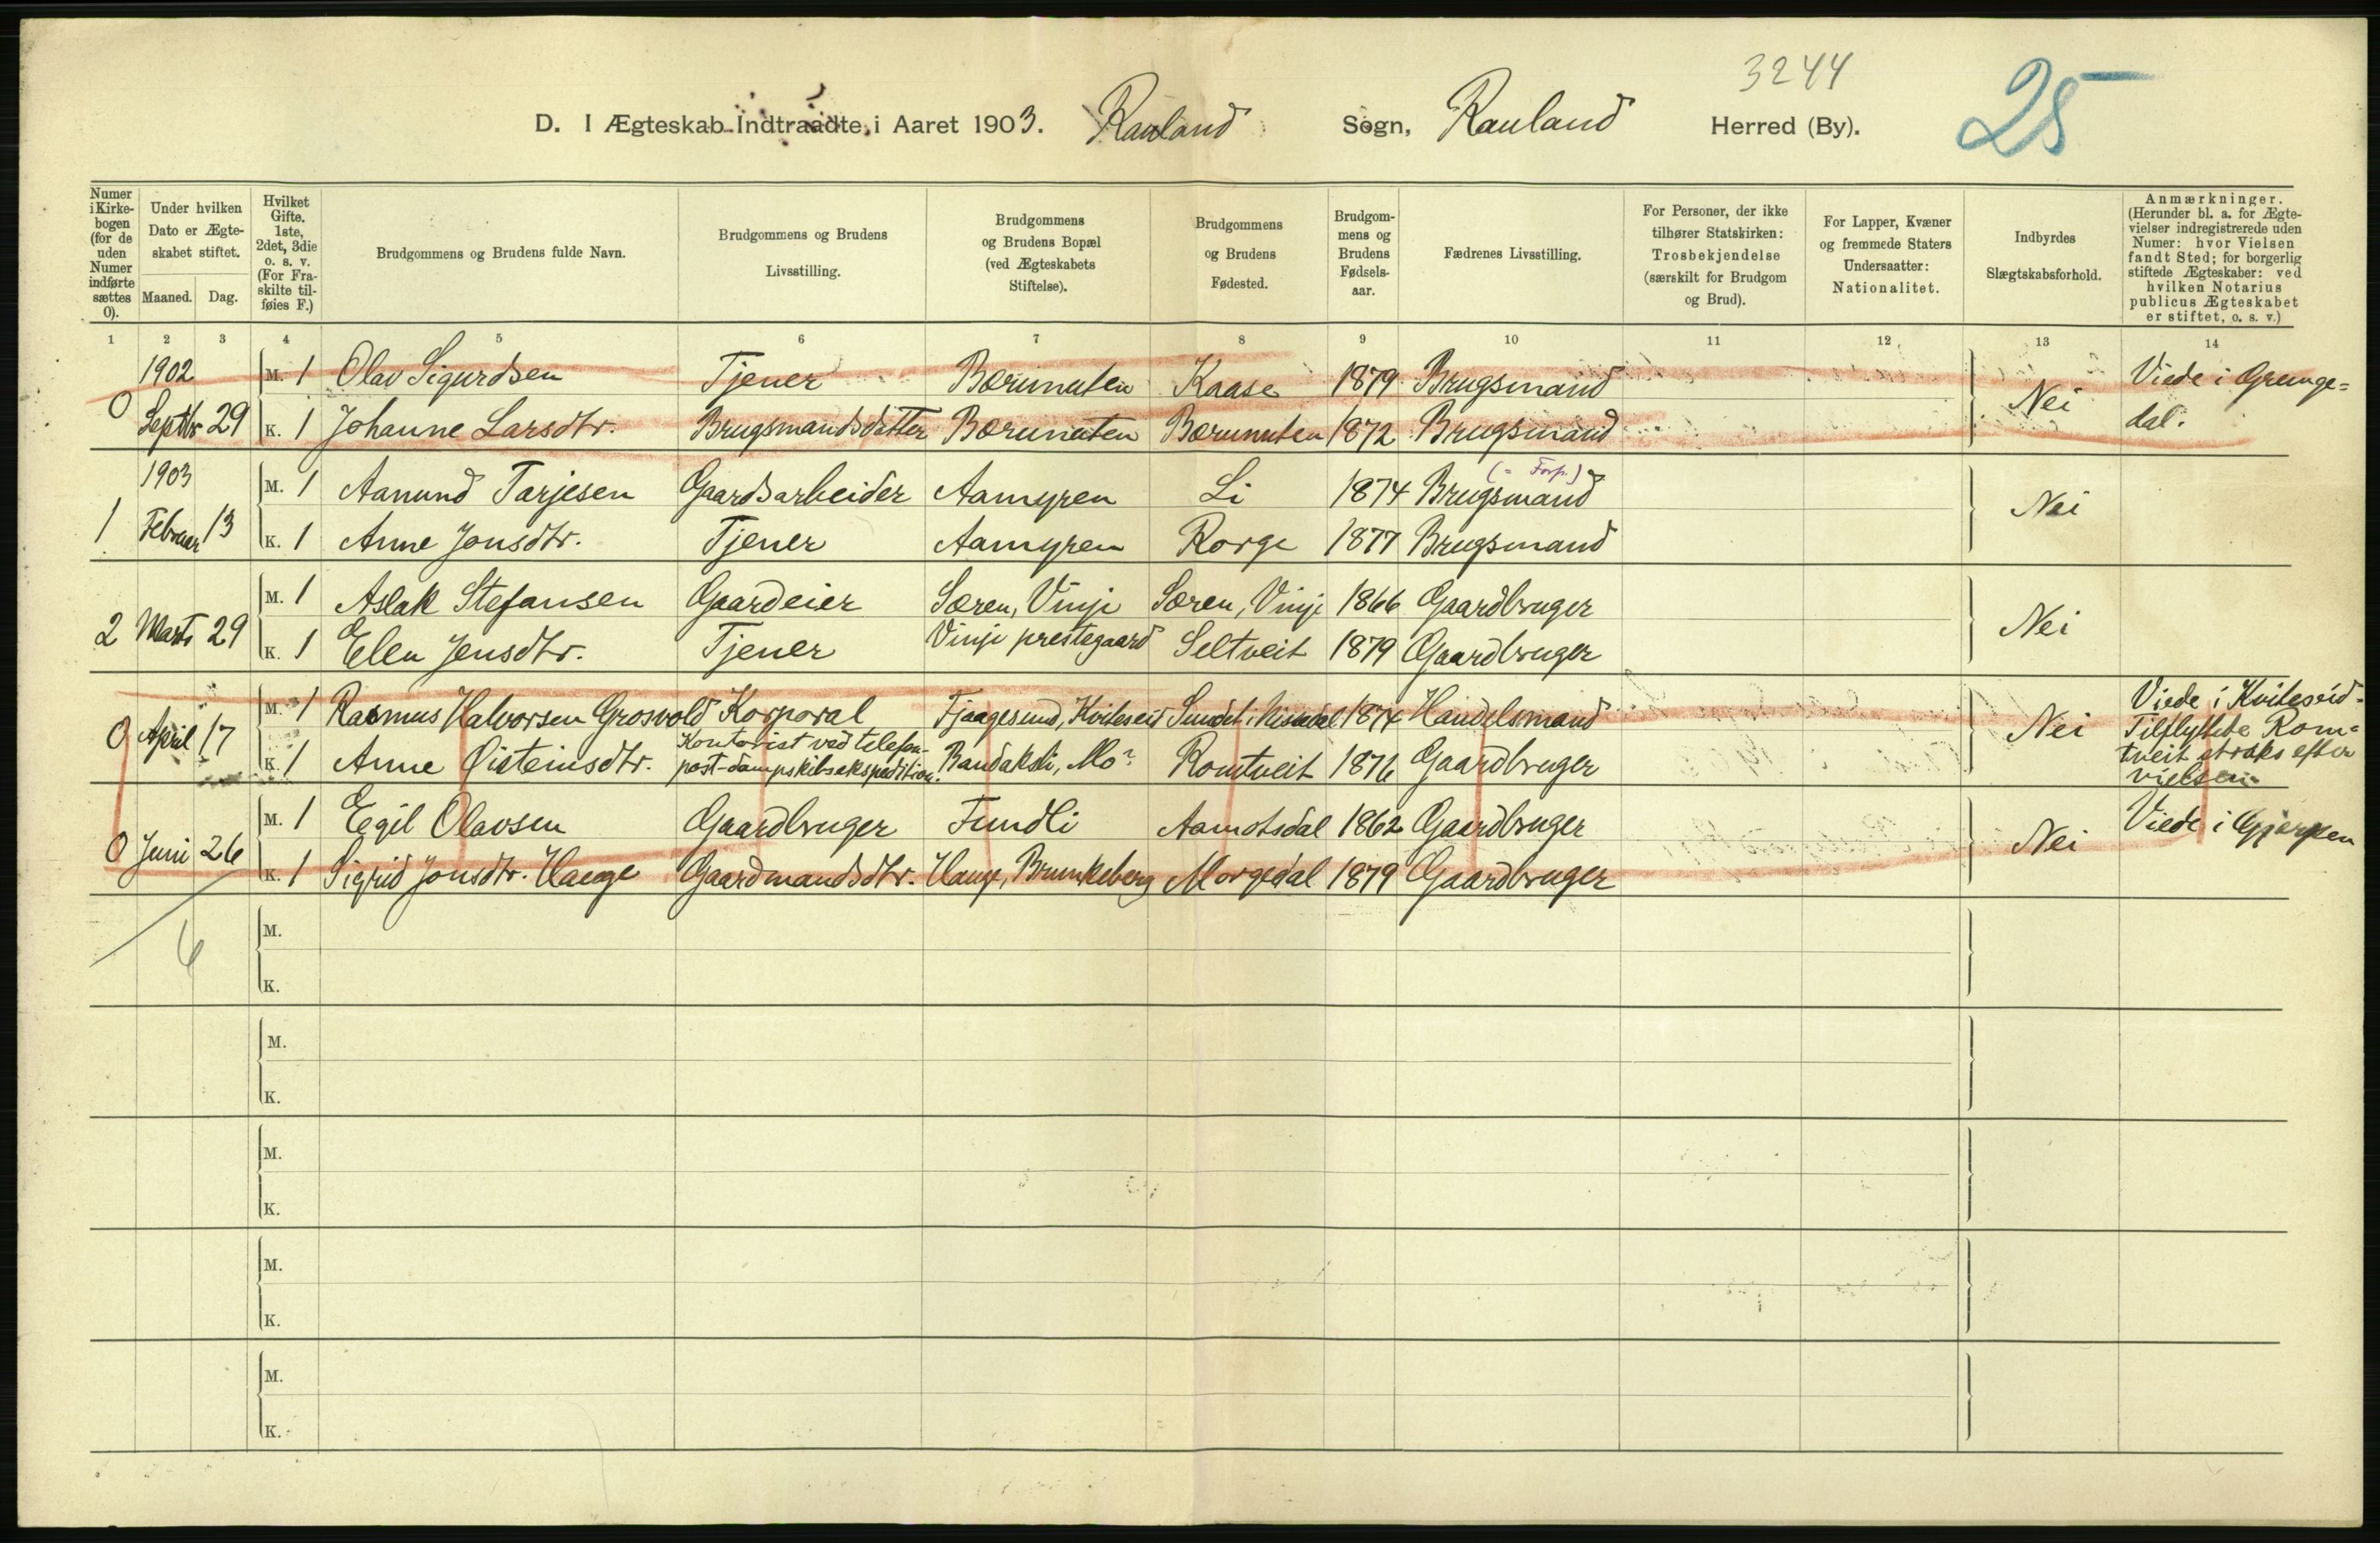 3244
25
D. I Ægteskab Indtraadte i Aaret 1903. Rauland Sogn, Rauland Herred (By).
Numer i Kirkebogen (for de uden Numer indførte sættes 0).
Under hvilken Dato er Ægteskabet stiftet.
Maaned. Dag.
Hvilket Gifte. 1ste, 2det, 3die o. s. v. (For Fraskilte tilføies F.)
Brudgommens og Brudens fulde Navn.
Brudgommens og Brudens Livsstilling.
Brudgommens og Brudens Bopæl (ved Ægteskabets Stiftelse).
Brudgommens og Brudens Fødested.
Brudgommens og Brudens Fødselsaar.
Fædrenes Livsstilling.
For Personer, der ikke tilhører Statskirken: Trosbekjendelse (særskilt for Brudgom og Brud).
For Lapper, Kvæner og fremmede Staters Undersaatter: Nationalitet.
Indbyrdes Slægtskabsforhold.
Anmærkninger. (Herunder bl. a. for Ægtevielser indregistrerede uden Numer: hvor Vielsen fandt Sted; for borgerlig stiftede Ægteskaber: ved hvilken Notarius publicus Ægteskabet er stiftet, o. s. v.)
1 2 3 4 5 6 7 8 9 10 11 12 13 14
1902 M. 1 Olav Sigurdsen Tjener Børunuten Kaase 1879 Brugsmand Viede i Grunge=
0 Septbr 29 K. 1 Johanne Larsdtr. Brugsmandsdatter Børunuten Børunuten 1872 Brugsmand Nei dal.
1903 M. 1 Aanund Tarjesen Gaardsarbeider Aamyren Li 1874 Brugsmand (= Forp.)
1 Februar 13 K. 1 Anne Jonsdtr. Tjener Aamyren Rorge 1877 Brugsmand Nei
M. 1 Aslak Stefansen Gaardeier Søren, Vinje Søren, Vinje 1866 Gaardbruger
2 Marts 29 K. 1 Elen Jensdtr. Tjener Vinje prestegaard Seltveit 1879 Gaardbruger Nei
M. 1 Rasmus Halvorsen Grosvold Korporal Fjaagesund, Kviteseid Sundet i Nissedal 1874 Handelsmand Viede i Kviteseid.
0 April 17 K. 1 Anne Øisteinsdtr. Kontorist ved telefon- post-dampskibsekspedition. Bandaksli, Mo Romtveit 1876 Gaardbruger Nei Tilflyttede Rom=
tveit straks efter
vielsen
M. 1 Egil Olavsen Gaardbruger Fundli Aamotsdal 1862 Gaardbruger Viede i Gjerpen
0 Juni 26 K. 1 Sigrid Jonsdtr. Hauge Gaardmandsdtr. Hauge, Brunkeberg Morgedal 1879 Gaardbruger Nei
M.
6
K.
M.
K.
M.
K.
M.
K.
M.
K.